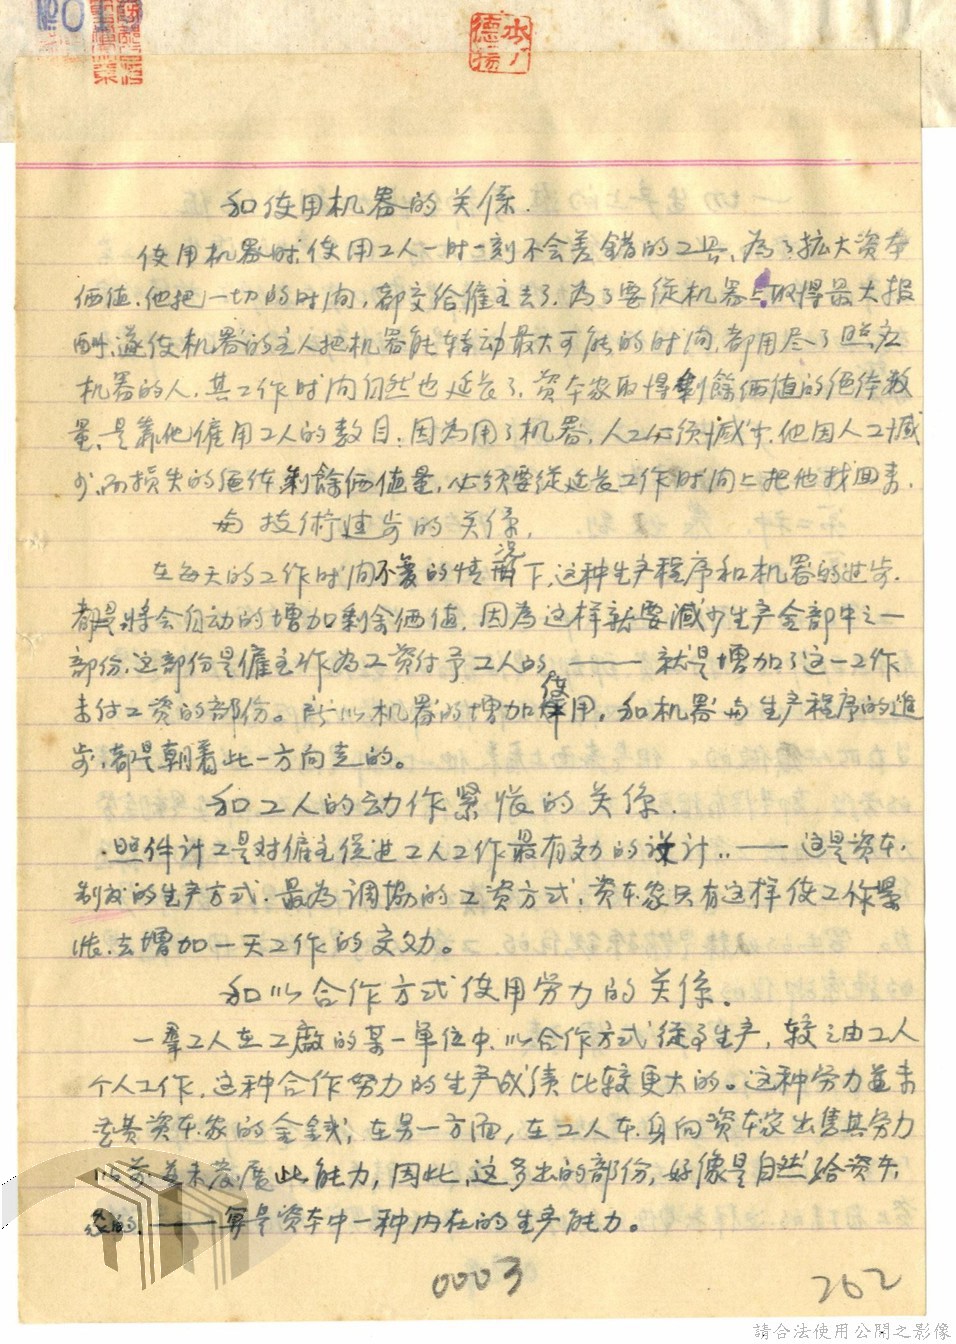 和使用机器的关係.
使用机器时,使用工人一时一刻不会差错的工具、為了拡大资本
価值.他把一切的时间,都交给僱主去了.為了要從机器取得最大报
酬,遂使机器的主人把机器能转动最大可能的时间,都用尽了照应
机器的人.其工作时间自然也延长了.资本家取得剩餘価值的绝体数
量,是靠他僱用工人的数目;因為用了机器,人工必须减少.他因人工减
少,而损失的绝体剩餘価值量,必须要從延长工作时间上把他找回来.
与技術进步的关係.
在每天的工作时间不变的情況下,这种生产程序和机器的进步.
都是将会自动的增加剩余価值.因為这样就要减少生产全部中之一
部份.这部份是僱主作為工资付予工人的.——就是增加了这一工作
未付工资的部份。所以机器的增加使用,和机器与生产程序的進
步,都是朝着此一方向走的。
和工人的动作紧张的关係.
.照件计工是对僱主促进工人工作最有効的设计..——这是资本.
制度的生产方式.最為调協的工资方式,资本家只有这样使工作紧
张.去增加一天工作的交効。
和以合作方式使用劳力的关係.
一羣工人在工廠的某一单位中.以合作方式從事生产,较之由工人
个人工作,这种合作努力的生产成绩比较更大的。这种劳力並未
花费资本家的金钱;在另一方面,在工人本身向资本家出售其劳力
以前並未发展此能力,因此,这多出的部份,好像是自然给资本,
家的.——算是资本中一种内在的生产能力。
0003
262
請合法使用公開之影像